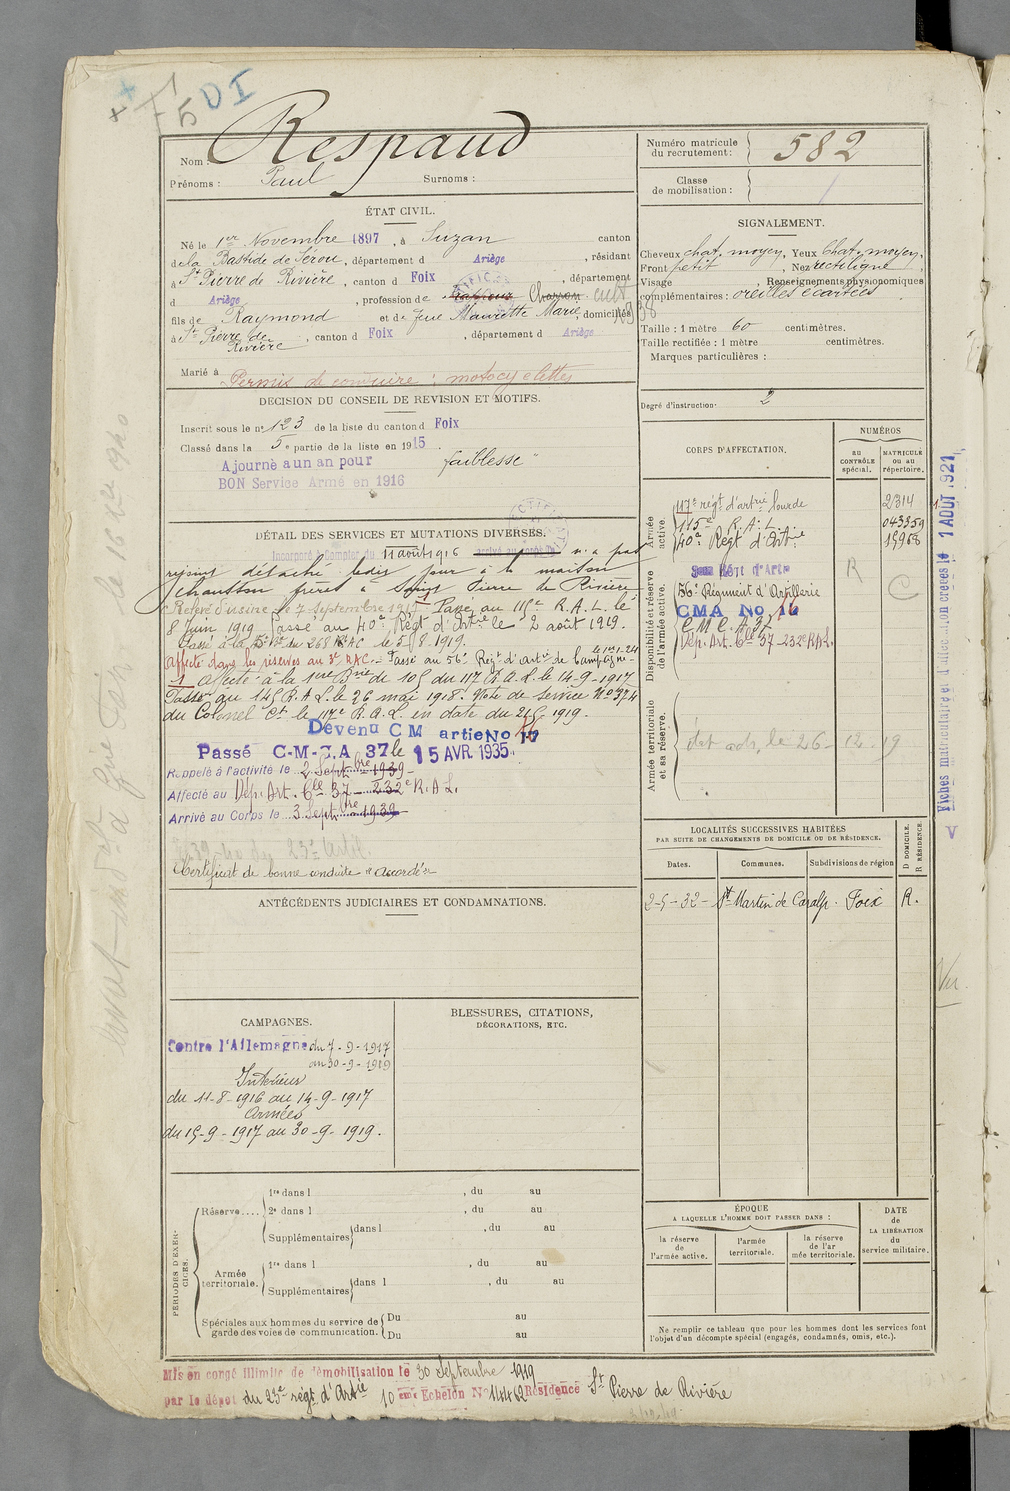 5 DI
Nom : Respaud
Prénoms : Paul Surnoms :
Numéro matricule
du recrutement : 582
Classe
de mobilisation :
ÉTAT CIVIL.
Né le 1er Novembre 1897, à Suzan canton
de la Bastide de Sérou, département d Ariège, résidant
à St Pierre de Rivière, canton d Foix, département
d Ariège, profession de Charron cult
fils de Raymond et de feue Maurette Marie, domiciliés
à St Pierre de Rivière, canton d Foix, département d Ariège
Marié à
Permis de conduire : motocyclettes
SIGNALEMENT.
Cheveux chat. moyen, Yeux Chat. moyen,
Front petit, Nez rectiligne,
Visage , Renseignements physionomiques
complémentaires : oreilles écartées
Taille : 1 mètre 60 centimètres.
Taille rectifiée : 1 mètre centimètres.
Marques particulières :
Degré d'instruction : 2
DÉCISION DU CONSEIL DE REVISION ET MOTIFS.
Inscrit sous le n° 123 de la liste du canton d Foix
Classé dans la 5e partie de la liste en 1915.
Ajourné a un an pour faiblesse
BON Service Armé en 1916
DÉTAIL DES SERVICES ET MUTATIONS DIVERSES.
Incorporé à Compter du 11 août 1916 arrivé au corps n'a pas
rejoint détaché ledit jour à la maison
frères à Saint Pierre de Rivière
7 septembre 1917 Passé au 115e R.A.L. le
8 Juin 1919 Passé au 40e Régt d'Artie le 2 août 1919.
Passé à la 268 RAC le 5/8 1919.
Affecté dans les réserves au 3e RAC - Passé au 56e Régt d'Artie de Campagne - le 1er-1-24
1 Affecté à la 1ère Brie de 105 du 117 R.A.L. le 14-9-1917
Passé au 145 R.A.L. le 26 mai 1918. Note de service N° 374
du Colonel Ct le 117e R.A.L. en date du 1919.
Devenu CM artie No
Passé C-M-C.A 37 le 15 AVR. 1935
Rappelé à l'activité le 2 Septbre 1939
Affecté au Dép. Art. Cle 37 - 232e R.A.L.
Arrivé au Corps le 3 Septbre 1939
Certificat de bonne conduite "accordé"
CORPS D'AFFECTATION.
NUMÉROS
au
CONTRÔLE
spécial.
MATRICULE
ou au
répertoire.
Armée
active.
117e régt d'artrie lourde 2314
115e R.A.L. 043359
40e Régt d'Artrie 15968
Disponibilité et réserve
de l'armée active.
Régt d'Artie R C
56e Régiment d'Artillerie
CMA No 16
C M C.A 37
Dép. Art. Cle 37 - 232e R.A.L.
Armée territoriale
et sa réserve.
le 26 - 12 - 19
Fiches matriculaire et 1 AOUT 1921
ANTÉCÉDENTS JUDICIAIRES ET CONDAMNATIONS.
LOCALITÉS SUCCESSIVES HABITÉES
PAR SUITE DE CHANGEMENTS DE DOMICILE OU DE RÉSIDENCE.
Dates. Communes. Subdivisions de région D DOMICILE. R RÉSIDENCE.
2-5-32 - St Martin de Caralp. Foix R.
Vu
CAMPAGNES.
Contre l'Allemagne du 7-9-1917
au 30-9-1919
Intérieur
du 11-8-1916 au 14-9-1917
Armées
du 15-9-1917 au 30-9-1919.
BLESSURES, CITATIONS,
DÉCORATIONS, ETC.
PÉRIODES D'EXERCICES.
Réserve.... 1re dans l , du au
2e dans l , du au
Supplémentaires dans l , du au
Armée
territoriale. 1re dans l , du au
Supplémentaires dans l , du au
Spéciales aux hommes du service de
garde des voies de communication. Du au
Du au
ÉPOQUE
A LAQUELLE L'HOMME DOIT PASSER DANS :
la réserve
de
l'armée active.
l'armée
territoriale.
la réserve
de l'ar
mée territoriale.
DATE
de
LA LIBÉRATION
du
service militaire.
Ne remplir ce tableau que pour les hommes dont les services font
l'objet d'un décompte spécial (engagés, condamnés, omis, etc.).
Mis en congé illimité de démobilisation le 30 septembre 1919
par le dépôt du 23e régt d'Artie 10eme Echelon No 14462 Résidence St Pierre de Rivière